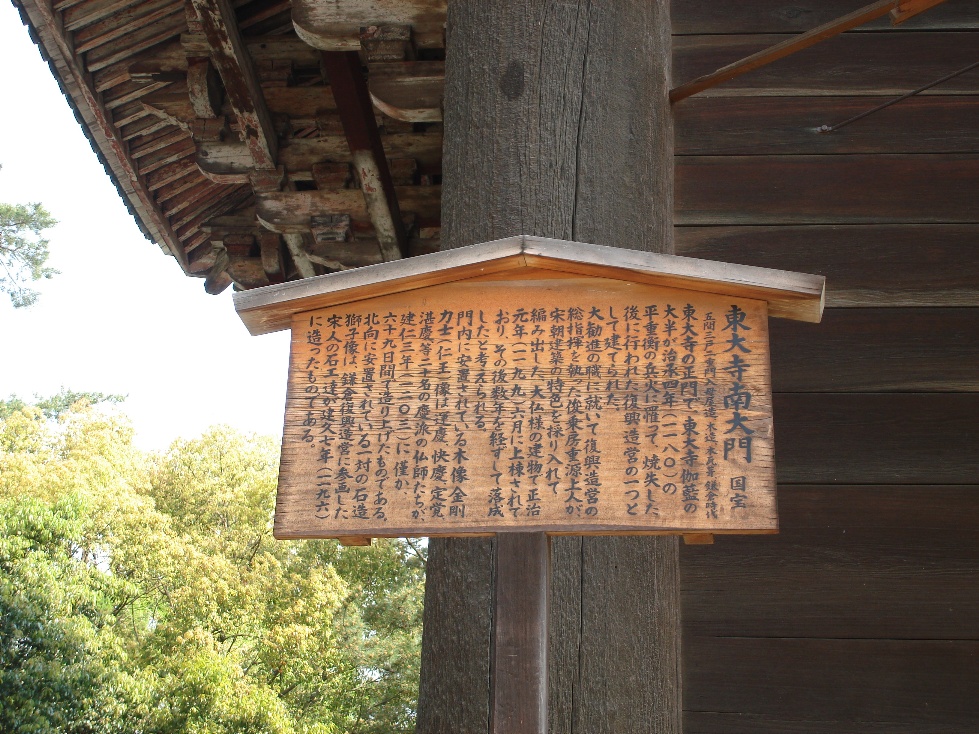 東大寺南大門 国宝
五間三戸二重門、入母屋造、本瓦葺 鎌倉時代
東大寺の正門で、東大寺伽藍の
大半が治承四年(一一八〇)の
平重衡の兵火に罹って、焼失した
後に行われた復興造営の一つと
して建てられた。
大勧進の職に就いて復興造営の
総指揮を執った俊乗房重源上人が
宋朝建築の特色を採り入れて
編み出した、大仏様の建物で、正治
元年(一一九九)六月に上棟されて
おり、その後数年を経ずして落成
したと考えられる。
門内に安置されている木像金剛
力士(仁王)像は運慶、快慶、定覚、
湛慶等二十名の慶派の仏師たちが、
建仁三年(一二〇三)に、僅か、
六十九日間で造り上げたものである。
北向に安置されている一対の石造
獅子像は、鎌倉復興造営に参画した
宋人の石工達が建久七年(一一九六)
に造ったものである。